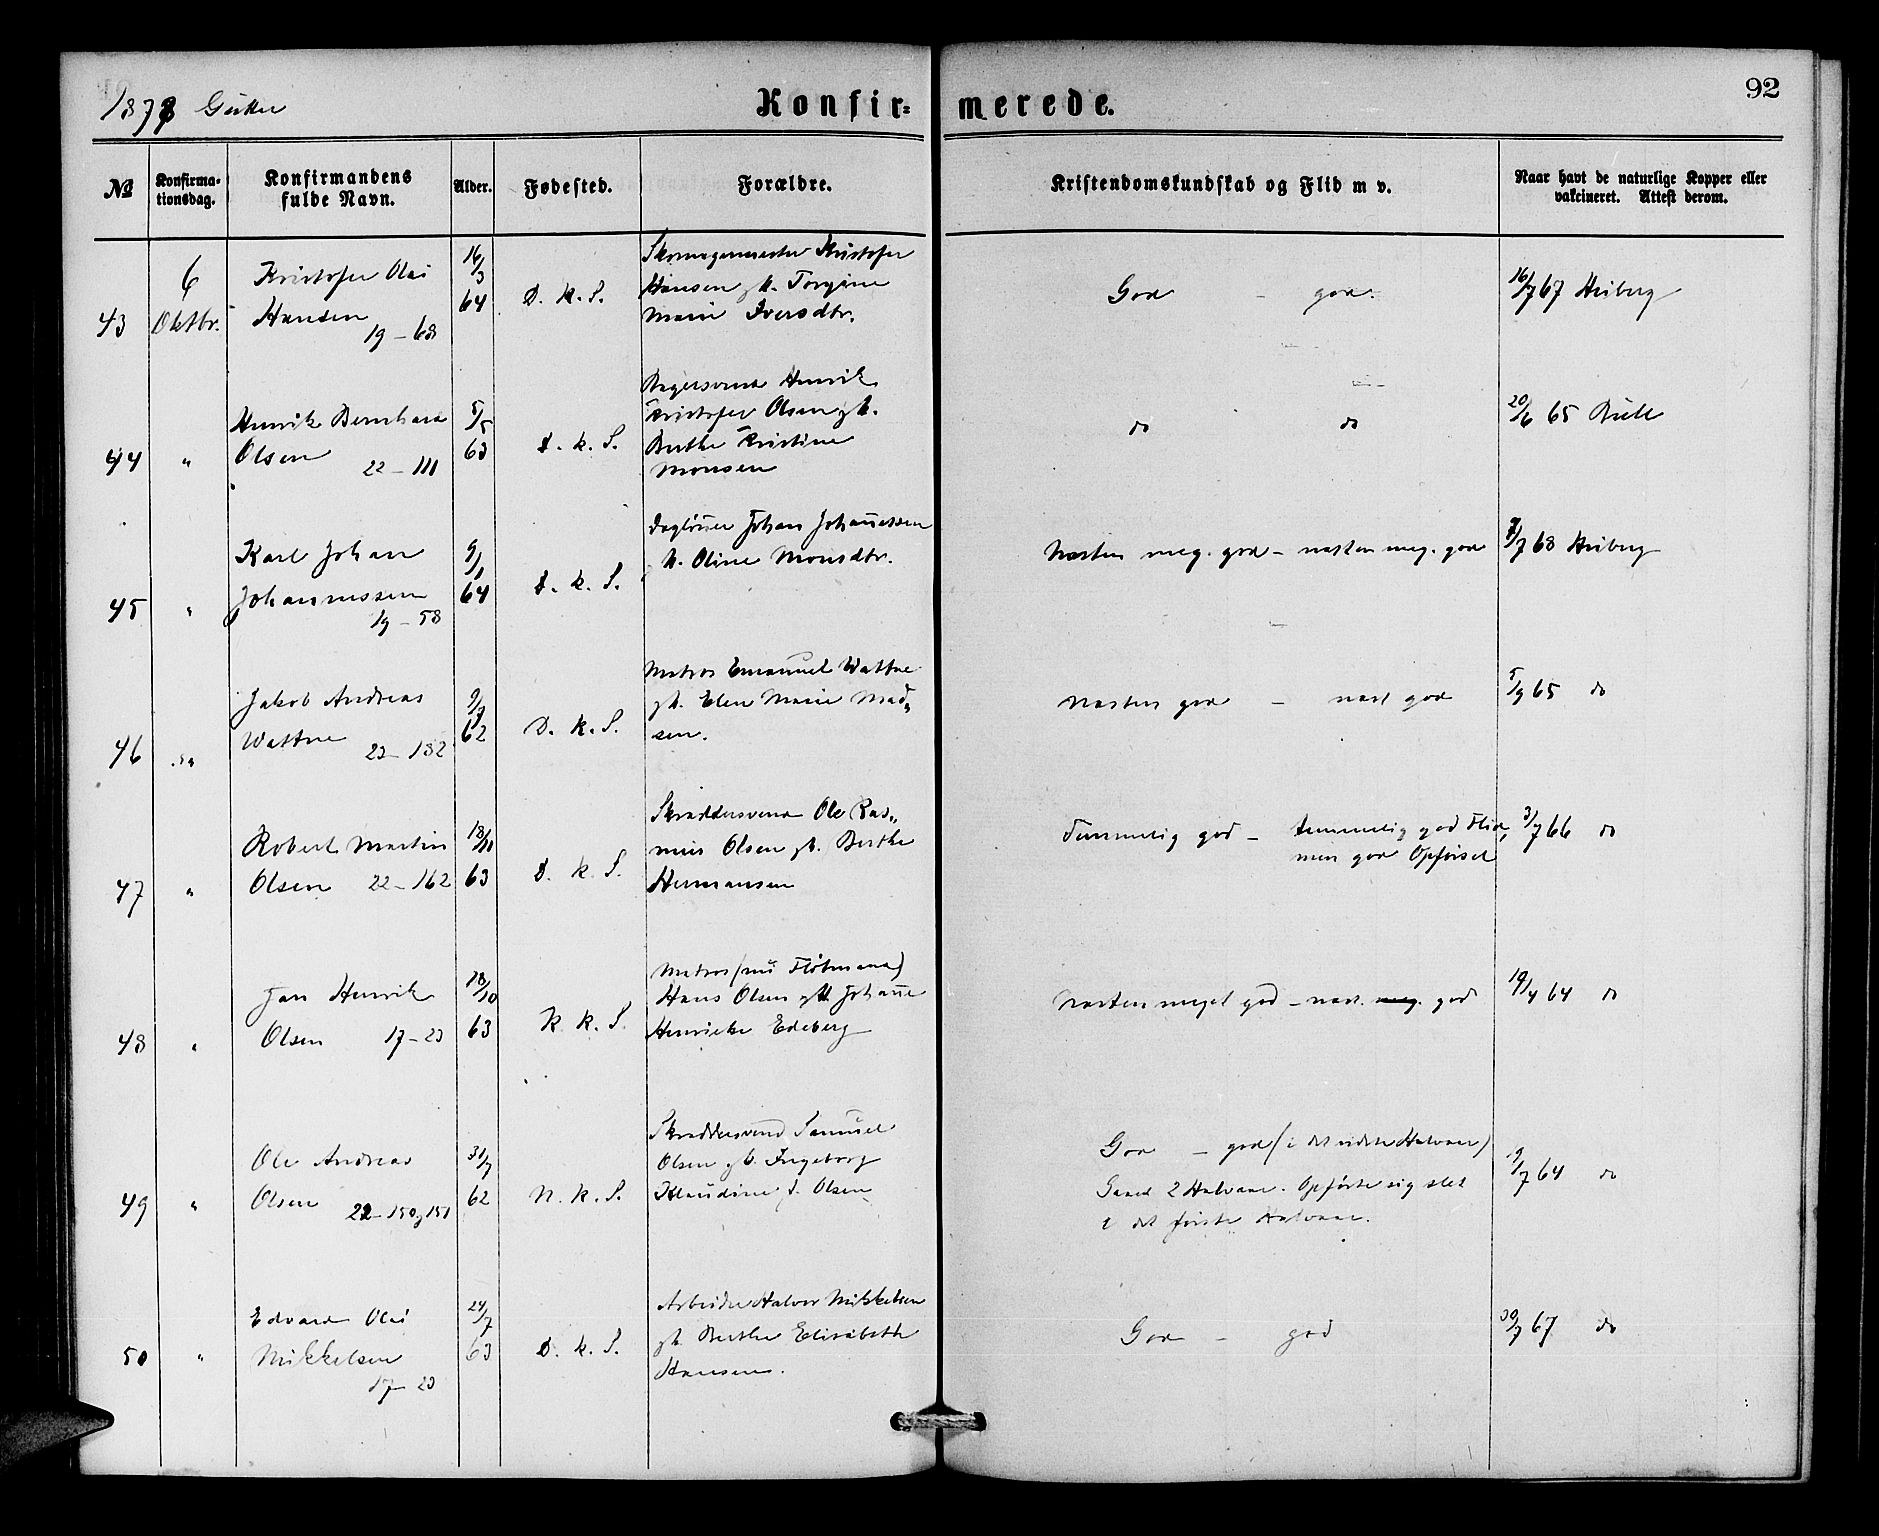 1878 Gutter
Konfir= merede.
92
No
Konfirma-
tionsdag.
Konfirmandens
fulde Navn.
Alder.
Fødested.
Forældre.
Kristendomskundskab og Flid m v.
Naar havt de naturlige Kopper eller
vakcineret. Attest derom.
43
6
Oktbr.
Kristofer Olai
Hansen
19 - 68
16/3
64
D. k. S.
Skomagermester Kristofer
Hansen gh. Torgine
Marie Iversdtr.
God - god.
16/7 67 Heiberg
44
"
Henrik Bernhard
Olsen 22 - 111
5/5
63
D. k. S.
Bagersvend Henrik
Kristofer Olsen gh.
Berthe Kristine
Monsen
do do
20/6 65 Bull
45
"
Karl Johan
Johannessen
19 - 58
9/1
64
D. k. S.
Dagløner Johan Johannessen
h. Oline Monsdtr.
Næsten meg. god - næsten meg. god
/7 68 Heiberg
46
"
Jakob Andreas
Wattne 22 - 132
9/3
62
D. k. S.
Matros Emanuel Wattne
gh. Elen Marie Mad-
sen.
Næsten god - næst god
5/9 65 do
47
"
Robert Martin
Olsen 22 - 162
18/11
63
D. k. S.
Skræddersvend Ole Ras-
mus Olsen gh. Berthe
Hermansen
Temmelig god - temmelig god Flid,
men god Opførsel
3/7 66 do
48
"
Jan Henrik
Olsen 17 - 23
18/10
63
K. k. S.
Matros (nu Fløtmand)
Hans Olsen gh Johanne
Henrieke Edeberg
Næsten meget god - næst. meg. god
19/4 64 do
49
"
Ole Andreas
Olsen 22 - 150 g 151
31/7
62
N. k. S.
Skræddersvend Samuel
Olsen gh. Ingeborg
Klaudine f. Olsen
God - god (i det sidste Halvaar)
Gaaed 2 Halvaar. Opførte sig slet
i det første Halvaar.
9/7 64 do
50
"
Edvard Olai
Mikkelsen
17 - 23
24/7
63
D. k. S.
Arbeider Halvor Mikkelsen
gh. Berthe Elisabeth
Hansen.
God - god
30/7 67 do